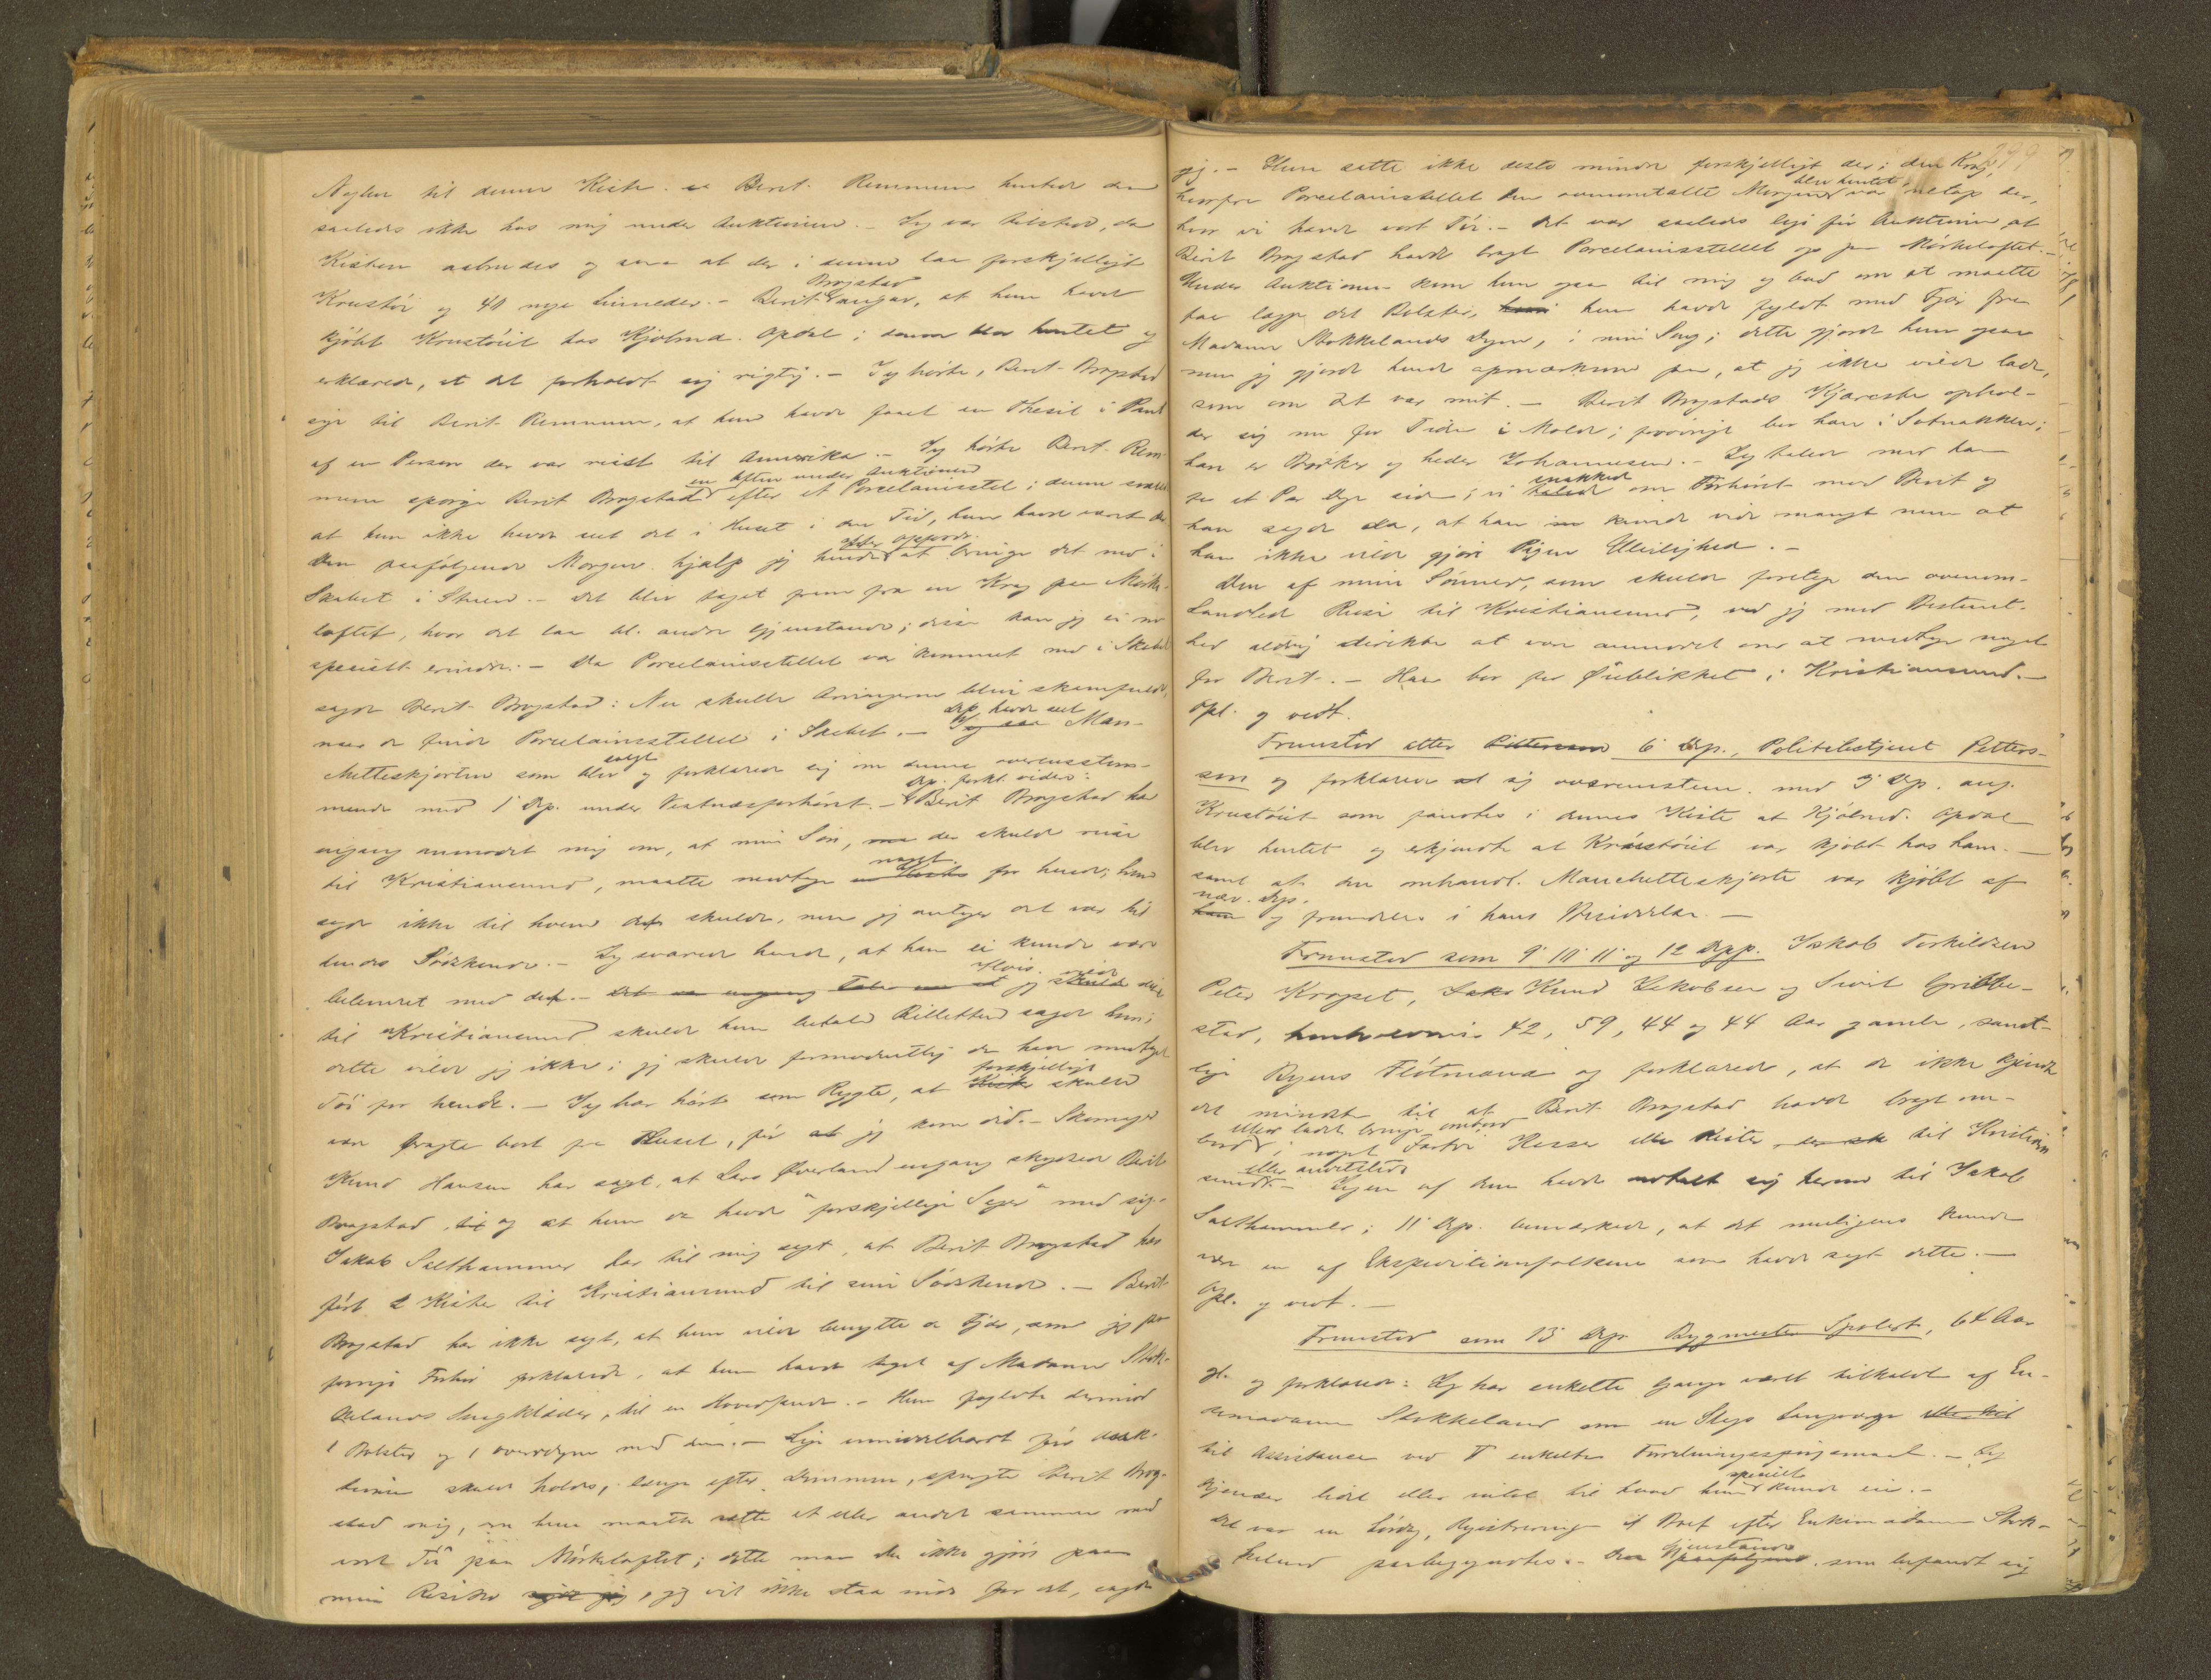 Nøglen til denne Kiste. Berit Remmem hentede den
saaledes ikke hos mig under Auktionen. – Jeg var tilstede, da
Kisten aabnedes og saa at der i denne laa forskjelligt
Krustöi og 40 nye Linneder. – Berit Brogstad, at hun havde
kjöbt Krustöiet hos Kjøbmd. Opdal; denne blev hentet og
erklærede, at det forholdt sig rigtig. – Jeg hørte, Berit Brogstad
sige til Berit Remmem, at hun havde faaet en Thesil i Pant
af en Person der var reist til Amerika. – Jeg hørte Berit Rem-
mem spørge Berit Brogstad en Aften under Auktionen efter et Porcelainsstel; denne svarede
at hun ikke havde seet det i Huset i den Tid, hun havde været der
Den paafølgende Morgen hjalp jeg hende efter Opfordr. at bringe det ned i
Skabet i Stuen. – Det blev taget frem fra en Krog paa Mörke-
loftet, hvor det laa bl. andre Gjenstande; disse kan jeg ei nu
specielt erindre. – Da Porcelainsstellet var kommet ned i Skabet
sagde Berit Brogstad: Nu skulle Arvingerne blive skamfulde,
naar de finde Porcelainsstellet i Skabet. – Dep. havde seet Man-
chetteskjorten som blev solgt og forklarede sig om denne overensstem-
mende med 1' Dep. under Vestnæsforhöret. – Dep. forkl. videre: Berit Brogstad har
engang anmodet mig om, at min Sön, der skulde reise
til Kristiansund, maatte medtage noget for hende; hun
sagde ikke til hvem det skulde, men jeg antager det var til
hendes Södskende. – Jeg svarede hende, at han ei kunde være
belemret med det. – Hvis jeg vilde reise
til Kristiansund skulde hun betale Billetten sagde hun;
dette vilde jeg ikke; jeg skulde formodentlig da have medtaget
Töi for hende. – Jeg har hört som Rygte, at forskjelligt skulde
være bragte bort fra Huset, för jeg kom did. – Skomager
Knud Hansen har sagt, at Lars Øverland engang skydsede Berit
Brogstad og at hun da havde "forskjellige Sager" med sig.
Jakob Salthammer har til mig sagt, at Berit Brogstad har
fört 2 Kister til Kristiansund til sine Södskende. – Berit
Brogstad har ikke sagt, at hun vilde benytte de Fjær, som jeg for
forrige Forhör forklarede, at hun havde taget af Madame Stok-
kelands Sengklæder, til en Hovedpude. – Hun fyldte dermed
1 Bolster og 1 Overdyne med dem. – Lige umiddelbart för Auk-
tionen skulde holdes, længe efter Dommen, spurgte Berit Brog-
stad mig, om hun maatte sætte et eller andet sammen med
vort Töi paa Mörkeloftet; dette maa De ikke gjöre paa
min Risiko, jeg vil ikke staa inde for det, sagde
299
jeg. – Hun satte ikke desto mindre forskjelligt der; den Krog,
hvorfra Porcelainsstellet den ommeldte Morgen blev hentet var netop der,
hvor vi havde vort Töi. – Det var saaledes lige för Auktionen, at
Berit Brogstad havde bragt Porcelainsstellet op paa Mörkeloftet. –
Under Auktionen kom hun ogsaa til mig og bad om at maatte
faa lægge det Bolster, hun havde fyldt med Fjær fra
Madame Stokkelands Dyne, i min Seng; dette gjorde hun ogsaa
men jeg gjorde hende opmærksom paa, at jeg ikke vilde lade,
som om det var mit. – Berit Brogstads Kjæreste ophol-
der sig nu for Tiden i Molde; forövrigt bor han i Sotnakken;
han er Bødker og heder Johannesen. – Jeg talede med ham
for et Par Dage siden; vi snakkede om Forhöret med Berit og
han sagde da, at han kunde vide mangt men at
han ikke vilde gjöre Pigen Uleilighed. –
Den af mine Sönner, som skulde foretage den ovenom-
handlede Reise til Kristiansund, ved jeg med Bestemt-
hed aldrig direkte at være anmodet om at medtage noget
for Berit. – Han bor for Øieblikket i Kristiansund. –
Opl. og vedt.
Fremstod atter 6' Dep., Politibetjent Petter-
sen og forklarede sig overensstem. med 5' Dep. ang.
Krustöiet som fandtes i dennes Kiste at Kjöbmd. Opdal
blev hentet og erkjendte at Krustöiet var kjöbt hos ham. –
samt at den omhandl. Manchetteskjorte var kjöbt af
nær. Dep. og fremdeles i hans Besiddelse. –
Fremstod som 9' 10' 11' og 12' Depp. Jakob Torkildsen
Peter Kropset, Knud Jakobsen og Sivert Gribbe-
stad, henholdsvis 42, 59, 44 og 44 Aar gamle, samt-
lige Byens Flötmænd og forklarede, at de ikke kjendte
det mindste til at Berit Brogstad havde bragt om-
bord eller ladet bringe ombord i noget Fartöi Kasser eller Kister til Kristian-
sund eller andetsteds. – Ingen af dem havde udtalt sig herom til Jakob
Salthammer; 11' Dep. bemærkede, at det muligens kunde
være en af Expeditionsfolkene som havde sagt dette. –
Opl. og vedt. –
Fremstod som 13' Dep. Bygmester Spolert, 64 Aar
gl. og forklarede: Jeg har enkelte Gange været tilkaldt af En-
kemadame Stokkeland som en Slags Laugværge
til Assistance ved enkelte Forretningsspörgsmaal. – Jeg
kjender lidet eller intet til hvad hun specielt kunde eie. –
Det var en Lördag, Registrering af Boet efter Enkemadame Stok-
keland paabegyndtes. – Gjenstande som befandt sig